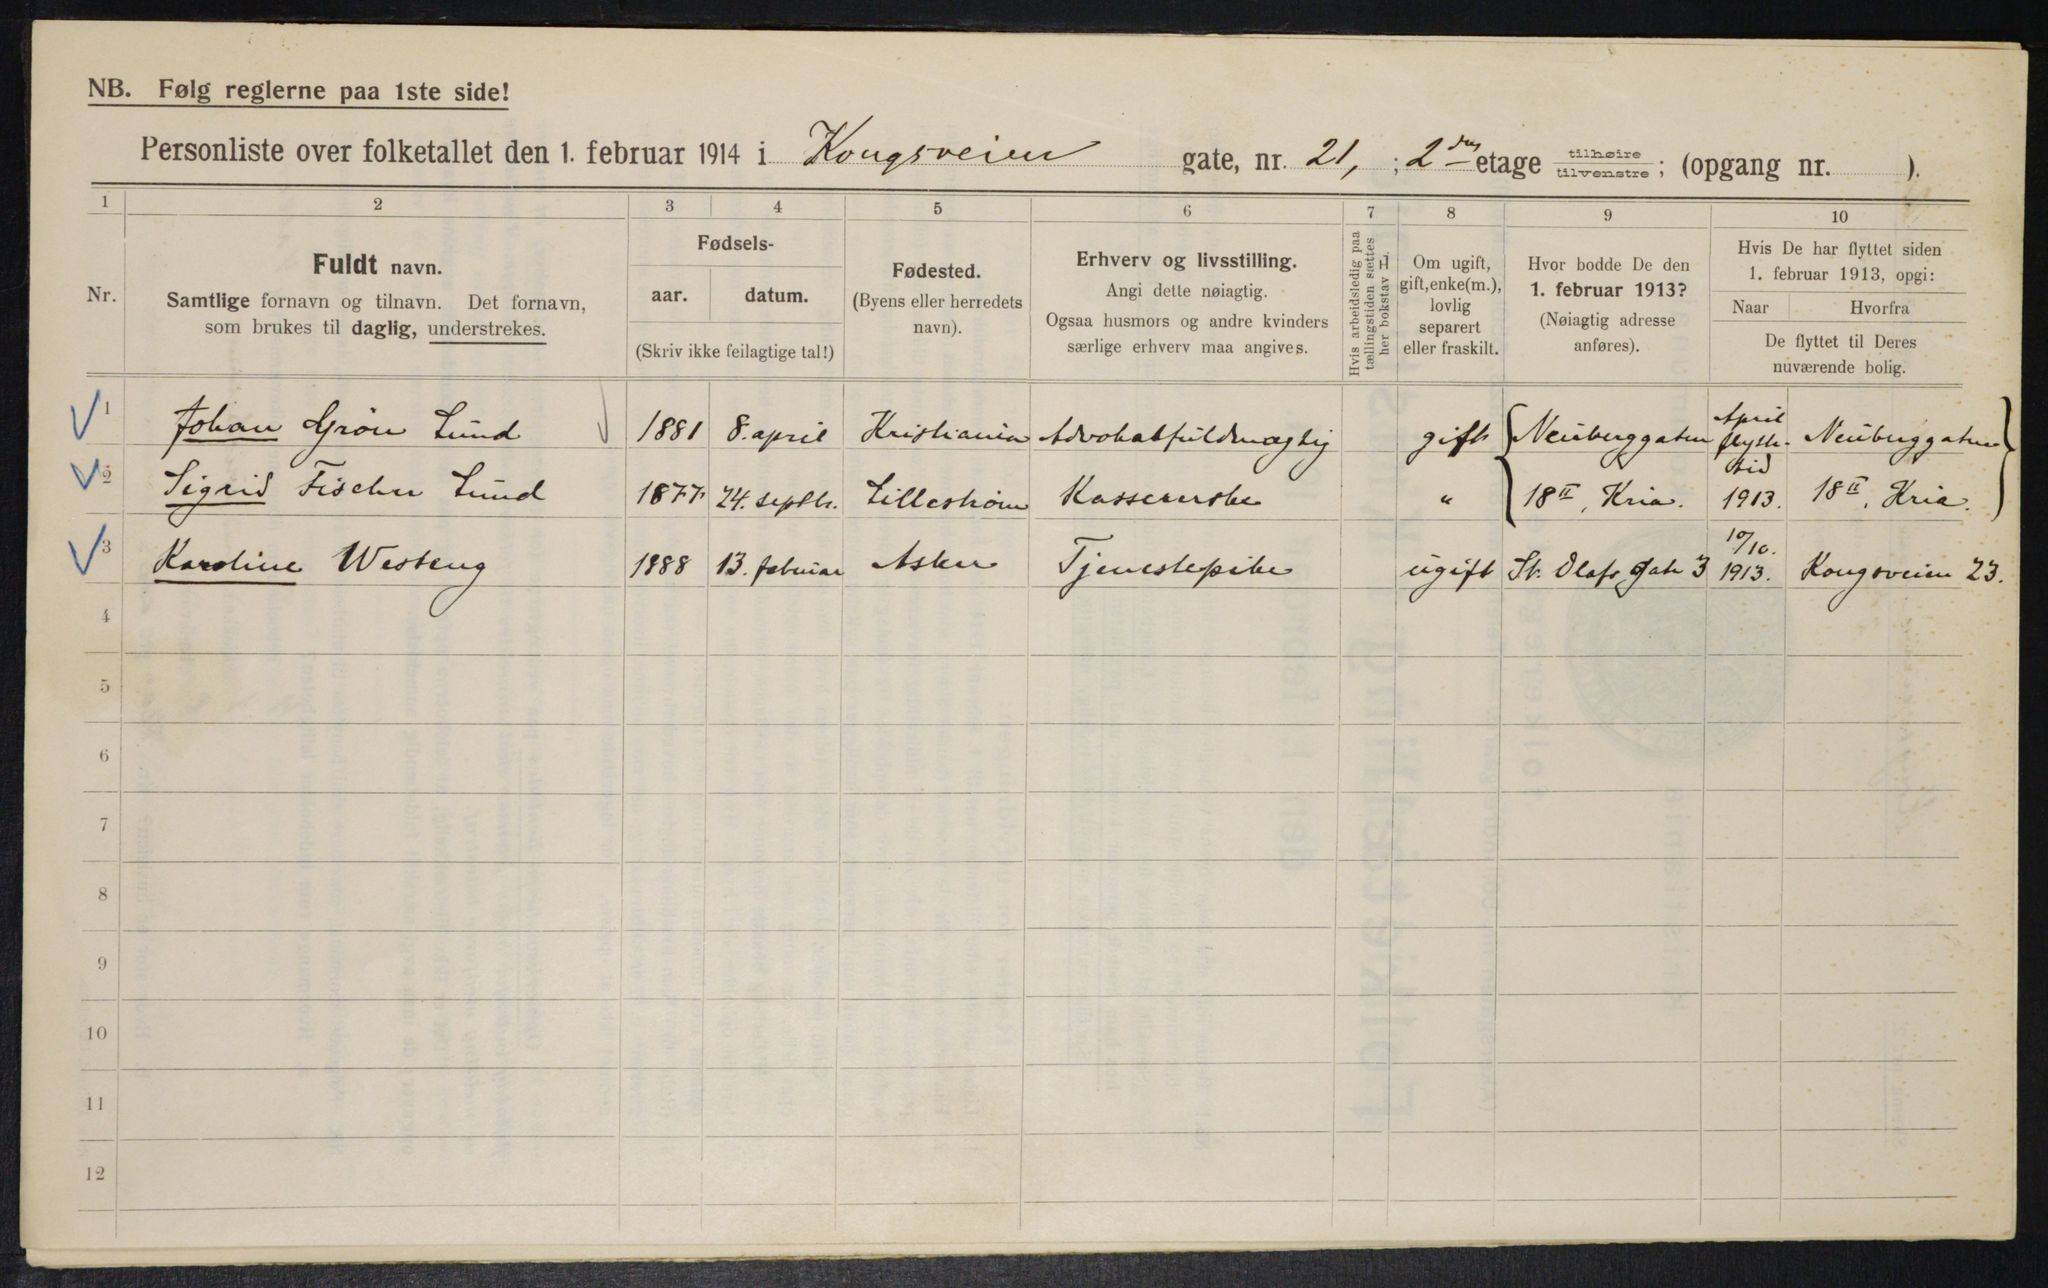 NB. Følg reglerne paa 1ste side!
Personliste over folketallet den 1. februar 1914 i Kongsveien gate, nr. 21, ; 2den etage tilhøire/tilvenstre; (opgang nr. ).
1 2 3 4 5 6 7 8 9 10
Nr.
Fuldt navn.
Samtlige fornavn og tilnavn. Det fornavn,
som brukes til daglig, understrekes.
Fødsels-
aar. datum.
(Skriv ikke feilagtige tal!)
Fødested.
(Byens eller herredets
navn).
Erhverv og livsstilling.
Angi dette nøiagtig.
Ogsaa husmors og andre kvinders
særlige erhverv maa angives.
Hvis arbeidsledig paa
tællingstiden sættes
her bokstav H
Om ugift,
gift, enke(m.),
lovlig
separert
eller fraskilt.
Hvor bodde De den
1. februar 1913?
(Nøiagtig adresse
anføres).
Hvis De har flyttet siden
1. februar 1913, opgi:
Naar Hvorfra
De flyttet til Deres
nuværende bolig.
1 Johan Grøn Lund 1881 8. april Kristiania Advokatfuldmægtig gift Neuberggaten April flytte- Neuberggaten
2 Sigrid Fischer Lund 1877 24. septbr. Lillestrøm Kassererske " 18 II, Kria. tid 1913. 18 II, Kria.
3 Karoline Westeng 1888 13. februar Asker Tjenestepike ugift St. Olafs gate 3 10/10. 1913. Kongsveien 23.
4
5
6
7
8
9
10
11
12